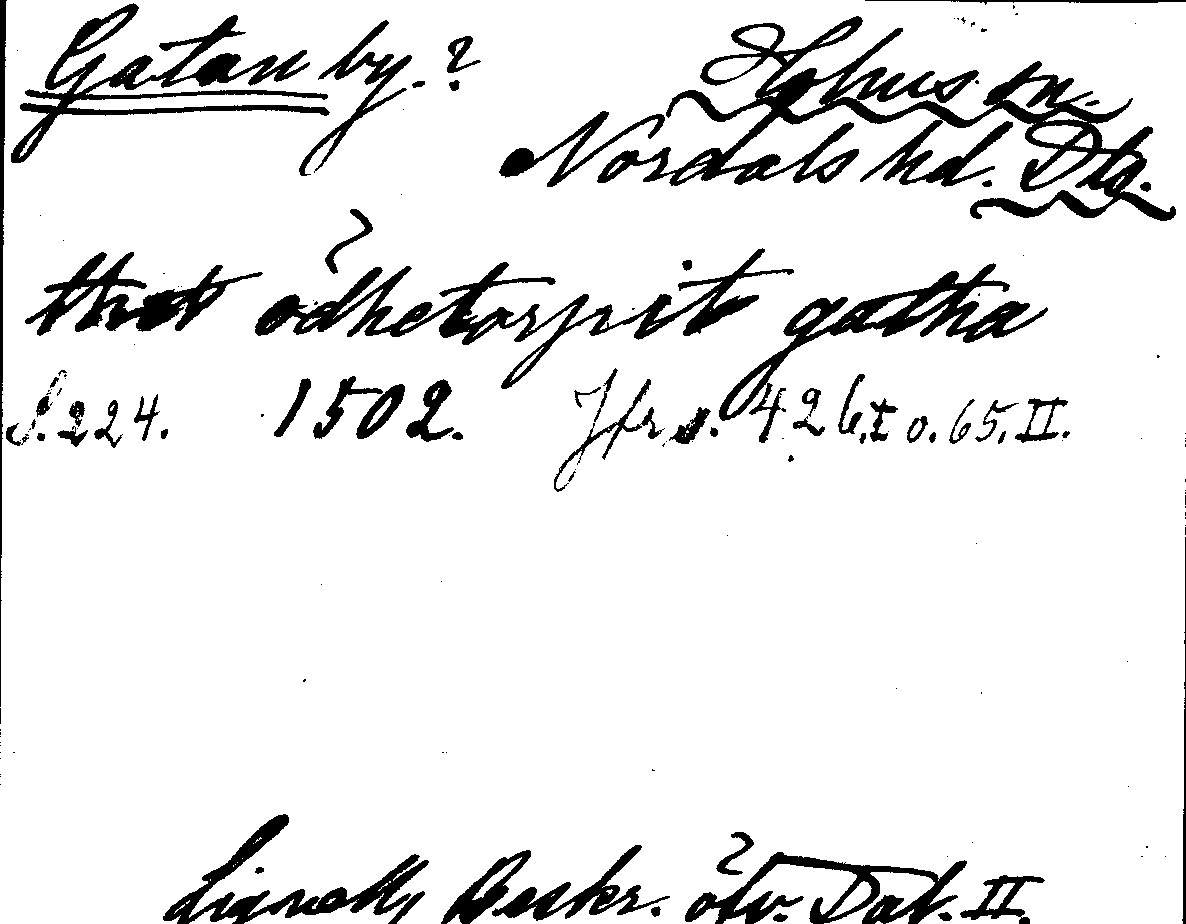 Gatan by.? Holms sn.
Nordals hd. Dls.
thet ödhetorpit gatha
S. 224. 1502. Jfr s. 426. I o. 65. II.
Lignell, Beskr. öfv. Dal. II.